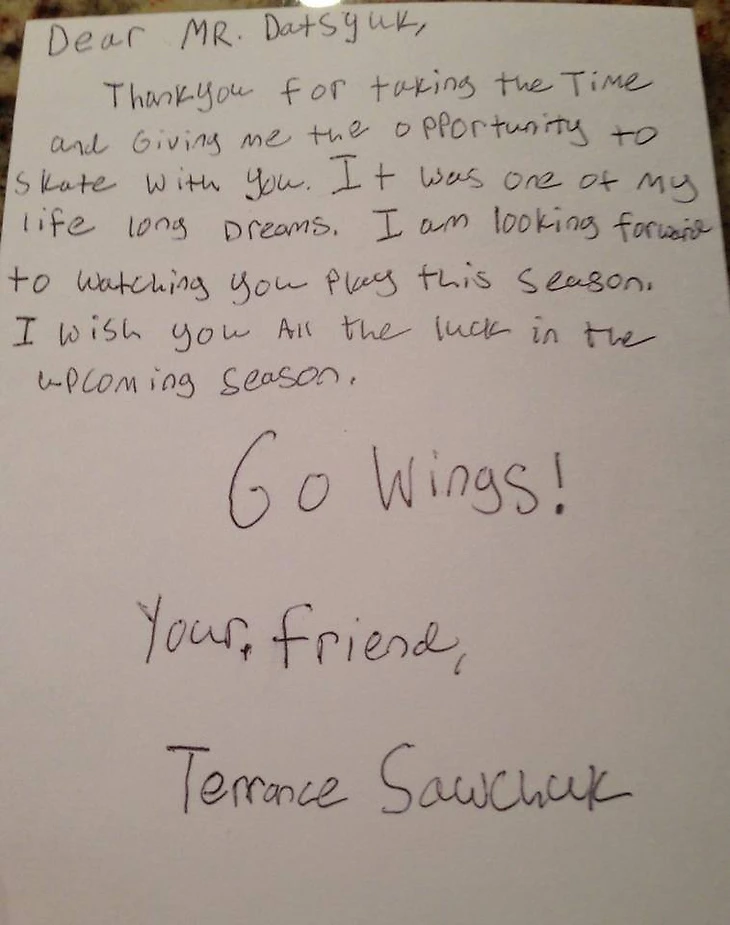 Dear MR. Datsyuk,
Thankyou for taking the Time
and Giving me the opportunity to
skate with you. It was one of my
life long Dreams. I am looking forward
to watching you play this season.
I wish you All the luck in the
upcoming season.
Go Wings!
Your, friend,
Terrance Sawchuk